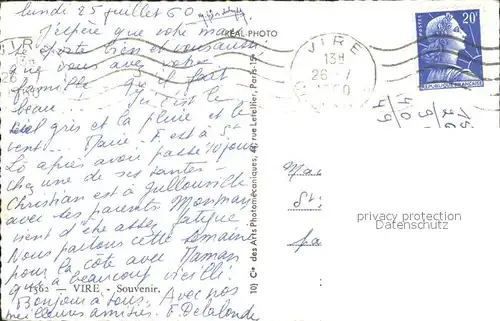 lundi 25 juillet 60
J'espère que votre mari
se porte bien et vous aussi
que vous avez votre
famille qu'il fait
beau
ciel gris et la pluie et le
vent... Marie. F est à St
Lô après avoir passé 10 jours
chez une de ses tantes -
Christian est à Jullouville
avec les parents
vient d'être assez fatigué
Nous partons cette semaine
pour la côte avec Maman
qui a beaucoup vieilli.
1362 - VIRE - Souvenir.
Bonjour à tous. Avec nos
meilleures amitiés. F. Delalonde
REAL-PHOTO
10) Cie des Arts Photomécaniques, 44, rue Letellier, Paris-15e
VIRE
13H
26-7
1960
POSTES
20F
REPUBLIQUE FRANÇAISE
40
49
privacy protection
Datenschutz